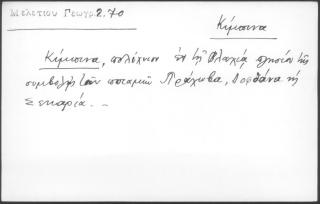 Μελετίου Γεωγρ. 2.70
Κίμπινα
Κίμπινα, πολίχνιον ἐν τῇ Βλαχίᾳ πλησίον τῆς
συμβολῆς τῶν ποταμῶν Πράχωβα, Δορδάνα καὶ